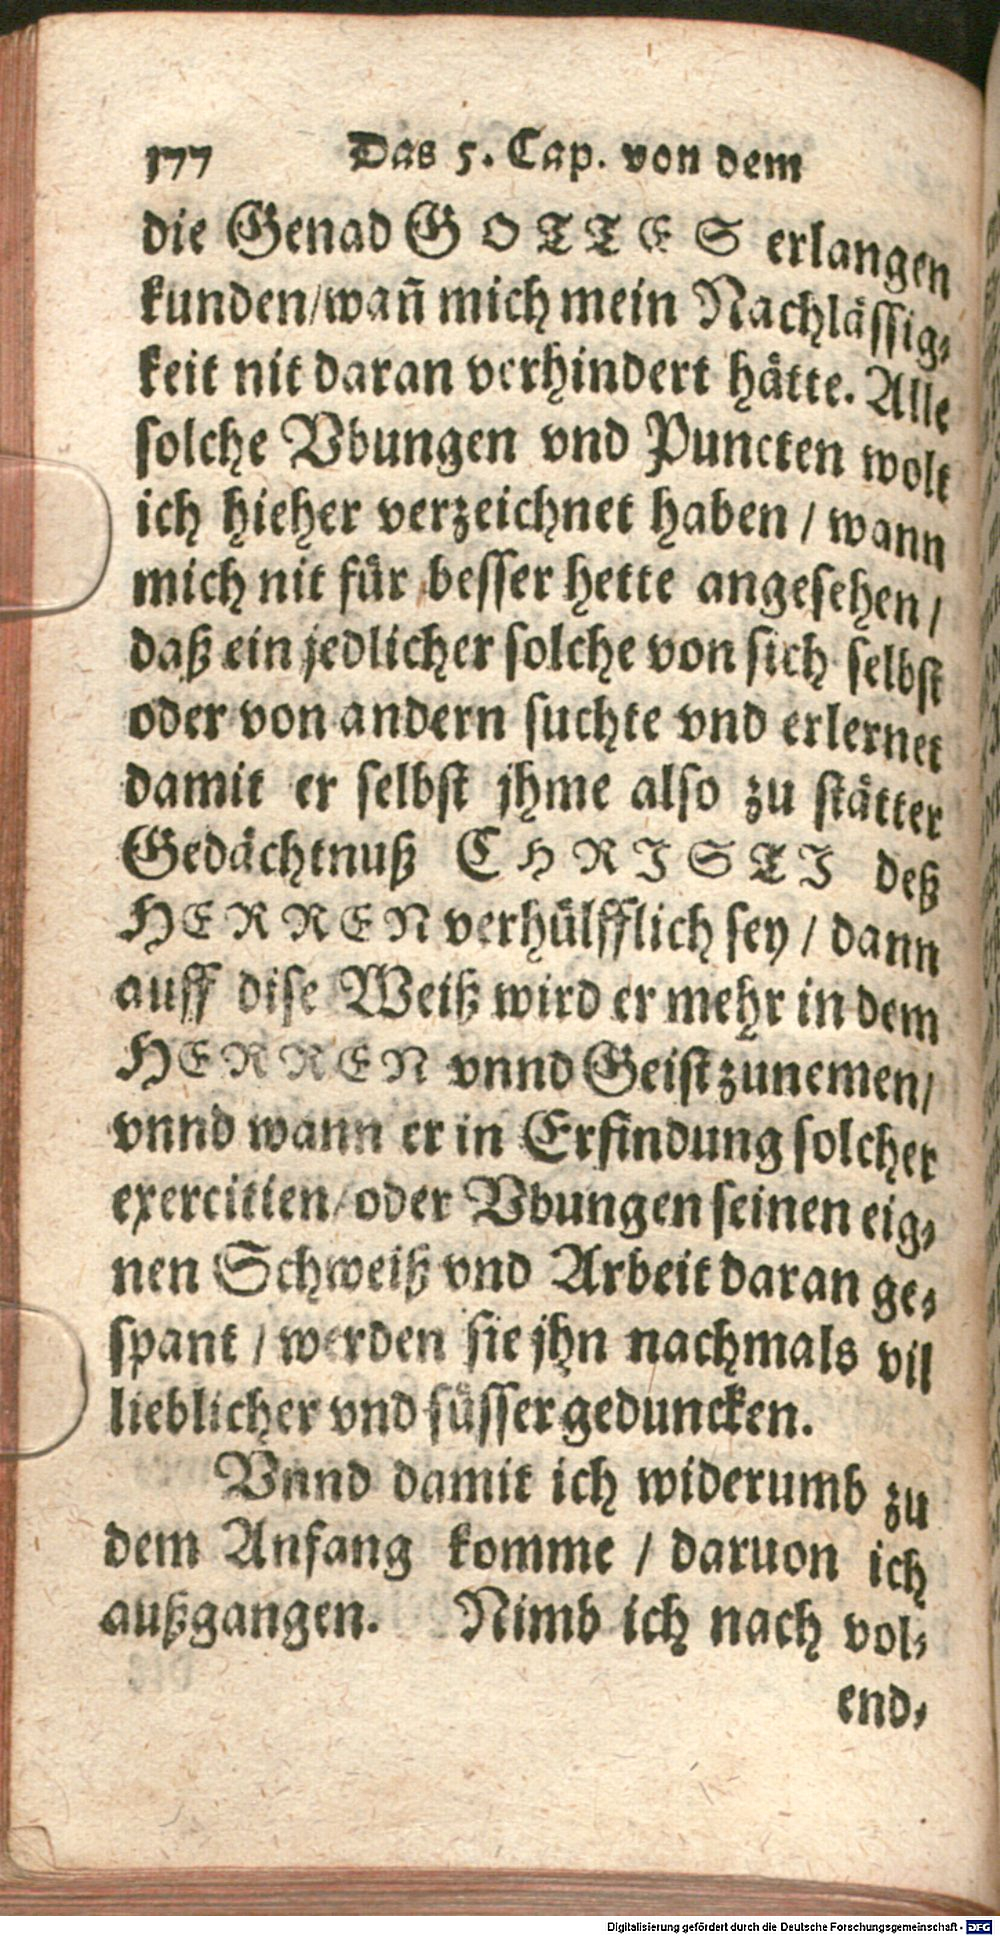 177 Das 5. Cap. von dem
die Genad GOTTES erlangen
kunden/wañ mich mein Nachlässig-
keit nit daran verhindert hätte. Alle
solche Vbungen vnd Puncten wolt
ich hieher verzeichnet haben / wann
mich nit für besser hette angesehen /
daß ein jedlicher solche von sich selbst
oder von andern suchte vnd erlernet
damit er selbst jhme also zu stätter
Gedächtnuß CHRISTI deß
HERREN verhülfflich sey / dann
auff dise Weiß wird er mehr in dem
HERREN vnnd Geist zunemen/
vnnd wann er in Erfindung solcher
exercitien/oder Vbungen seinen eig-
nen Schweiß vnd Arbeit daran ge-
spant / werden sie jhn nachmals vil
lieblicher vnd süsser geduncken.
Vnnd damit ich widerumb zu
dem Anfang komme / daruon ich
außgangen. Nimb ich nach vol-
end-
Digitalisierung gefördert durch die Deutsche Forschungsgemeinschaft - DFG